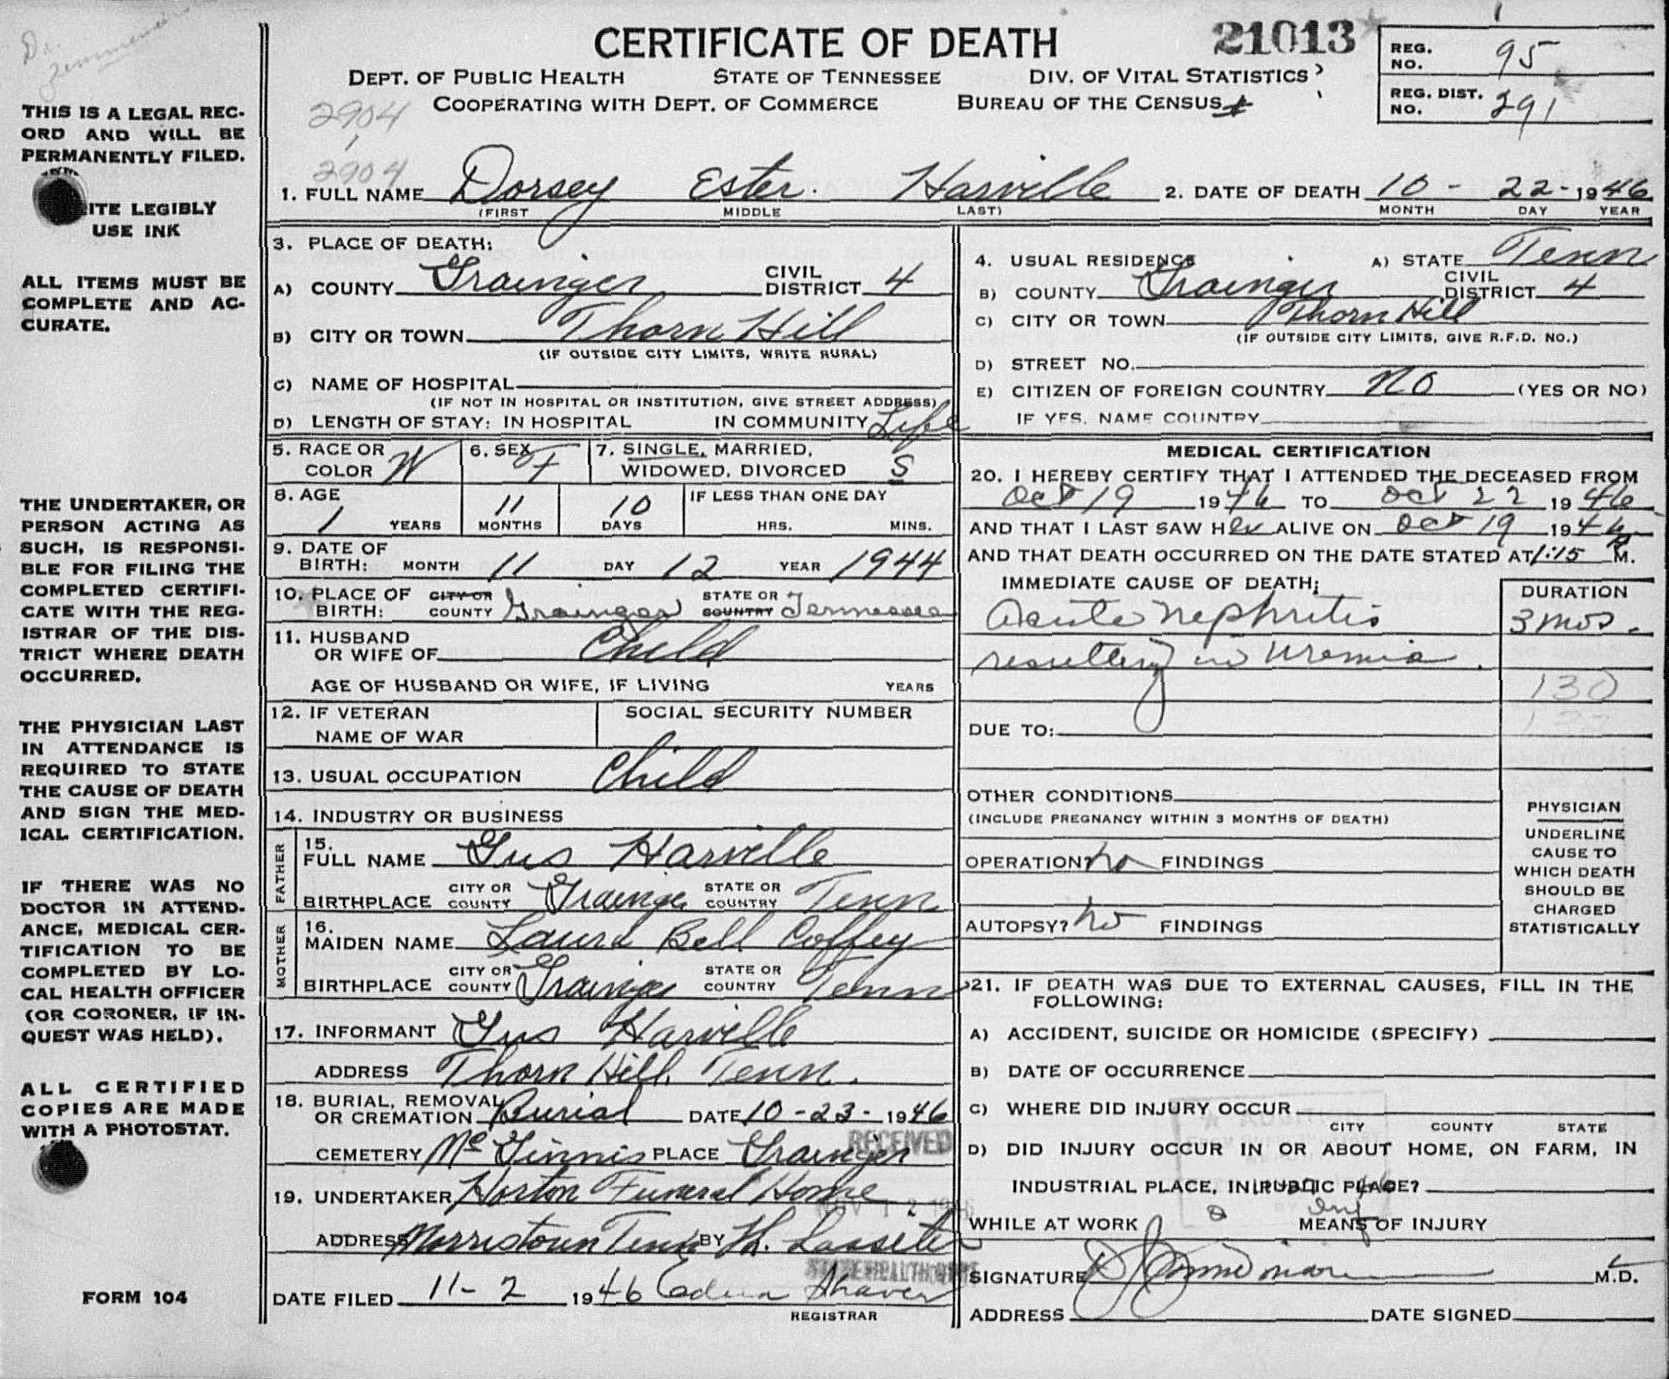 CERTIFICATE OF DEATH
21013
DEPT. OF PUBLIC HEALTH STATE OF TENNESSEE DIV. OF VITAL STATISTICS
COOPERATING WITH DEPT. OF COMMERCE BUREAU OF THE CENSUS
REG. NO. 95
REG. DIST. NO. 291
2904
2904
1. FULL NAME Dorsey Ester Harville 2. DATE OF DEATH 10 - 22 - 1946
(FIRST MIDDLE LAST) MONTH DAY YEAR
THIS IS A LEGAL REC-
ORD AND WILL BE
PERMANENTLY FILED.
ITE LEGIBLY
USE INK
ALL ITEMS MUST BE
COMPLETE AND AC-
CURATE.
THE UNDERTAKER, OR
PERSON ACTING AS
SUCH, IS RESPONSI-
BLE FOR FILING THE
COMPLETED CERTIFI-
CATE WITH THE REG-
ISTRAR OF THE DIS-
TRICT WHERE DEATH
OCCURRED.
THE PHYSICIAN LAST
IN ATTENDANCE IS
REQUIRED TO STATE
THE CAUSE OF DEATH
AND SIGN THE MED-
ICAL CERTIFICATION.
IF THERE WAS NO
DOCTOR IN ATTEND-
ANCE, MEDICAL CER-
TIFICATION TO BE
COMPLETED BY LO-
CAL HEALTH OFFICER
(OR CORONER, IF IN-
QUEST WAS HELD).
ALL CERTIFIED
COPIES ARE MADE
WITH A PHOTOSTAT.
FORM 104
3. PLACE OF DEATH:
A) COUNTY Grainger CIVIL DISTRICT 4
B) CITY OR TOWN Thorn Hill
(IF OUTSIDE CITY LIMITS, WRITE RURAL)
C) NAME OF HOSPITAL
(IF NOT IN HOSPITAL OR INSTITUTION, GIVE STREET ADDRESS)
D) LENGTH OF STAY: IN HOSPITAL IN COMMUNITY Life
5. RACE OR COLOR W 6. SEX F 7. SINGLE, MARRIED, WIDOWED, DIVORCED S
8. AGE 1 YEARS 11 MONTHS 10 DAYS IF LESS THAN ONE DAY HRS. MINS.
9. DATE OF BIRTH: MONTH 11 DAY 12 YEAR 1944
10. PLACE OF BIRTH: CITY OR COUNTY Grainger STATE OR COUNTRY Tennessee
11. HUSBAND OR WIFE OF Child
AGE OF HUSBAND OR WIFE, IF LIVING YEARS
12. IF VETERAN NAME OF WAR SOCIAL SECURITY NUMBER
13. USUAL OCCUPATION Child
14. INDUSTRY OR BUSINESS
FATHER
15. FULL NAME Gus Harville
BIRTHPLACE CITY OR COUNTY Grainger STATE OR COUNTRY Tenn
MOTHER
16. MAIDEN NAME Laura Bell Coffey
BIRTHPLACE CITY OR COUNTY Grainger STATE OR COUNTRY Tenn
17. INFORMANT Gus Harville
ADDRESS Thorn Hill, Tenn.
18. BURIAL, REMOVAL OR CREMATION Burial DATE 10-23-1946
CEMETERY McGinnis PLACE Grainger
RECEIVED
19. UNDERTAKER Horton Funeral Home
ADDRESS Morristown Tenn BY H. Lasseter
DATE FILED 11-2 1946 Edna Shaver
REGISTRAR
4. USUAL RESIDENCE A) STATE Tenn
B) COUNTY Grainger CIVIL DISTRICT 4
C) CITY OR TOWN Thorn Hill
(IF OUTSIDE CITY LIMITS, GIVE R.F.D. NO.)
D) STREET NO.
E) CITIZEN OF FOREIGN COUNTRY NO (YES OR NO)
IF YES, NAME COUNTRY
MEDICAL CERTIFICATION
20. I HEREBY CERTIFY THAT I ATTENDED THE DECEASED FROM
Oct 19 1946 TO Oct 22 1946
AND THAT I LAST SAW HER ALIVE ON Oct 19 1946
AND THAT DEATH OCCURRED ON THE DATE STATED AT 1:15 P M.
IMMEDIATE CAUSE OF DEATH: DURATION
Acute nephritis 3 mos.
resulting in Uremia.
130
DUE TO:
OTHER CONDITIONS
(INCLUDE PREGNANCY WITHIN 3 MONTHS OF DEATH)
OPERATION no FINDINGS
AUTOPSY? no FINDINGS
PHYSICIAN
UNDERLINE
CAUSE TO
WHICH DEATH
SHOULD BE
CHARGED
STATISTICALLY
21. IF DEATH WAS DUE TO EXTERNAL CAUSES, FILL IN THE
FOLLOWING:
A) ACCIDENT, SUICIDE OR HOMICIDE (SPECIFY)
B) DATE OF OCCURRENCE
C) WHERE DID INJURY OCCUR
CITY COUNTY STATE
D) DID INJURY OCCUR IN OR ABOUT HOME, ON FARM, IN
INDUSTRIAL PLACE, IN PUBLIC PLACE?
WHILE AT WORK MEANS OF INJURY
SIGNATURE M.D.
ADDRESS DATE SIGNED